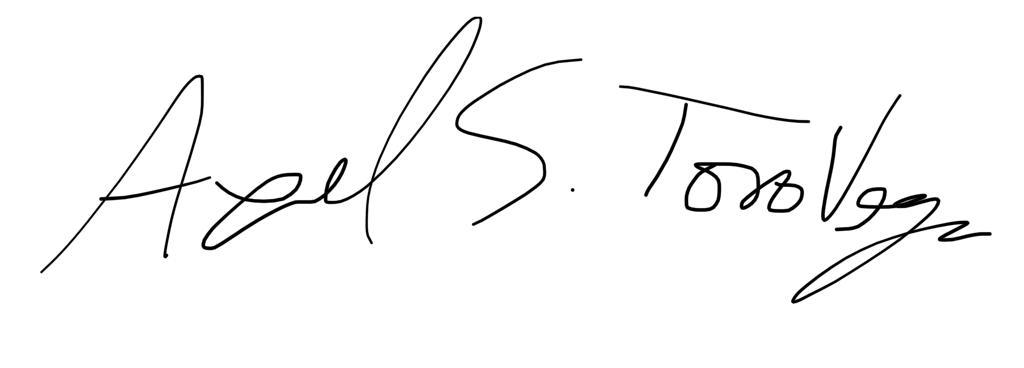 Axel S. Toro Vega